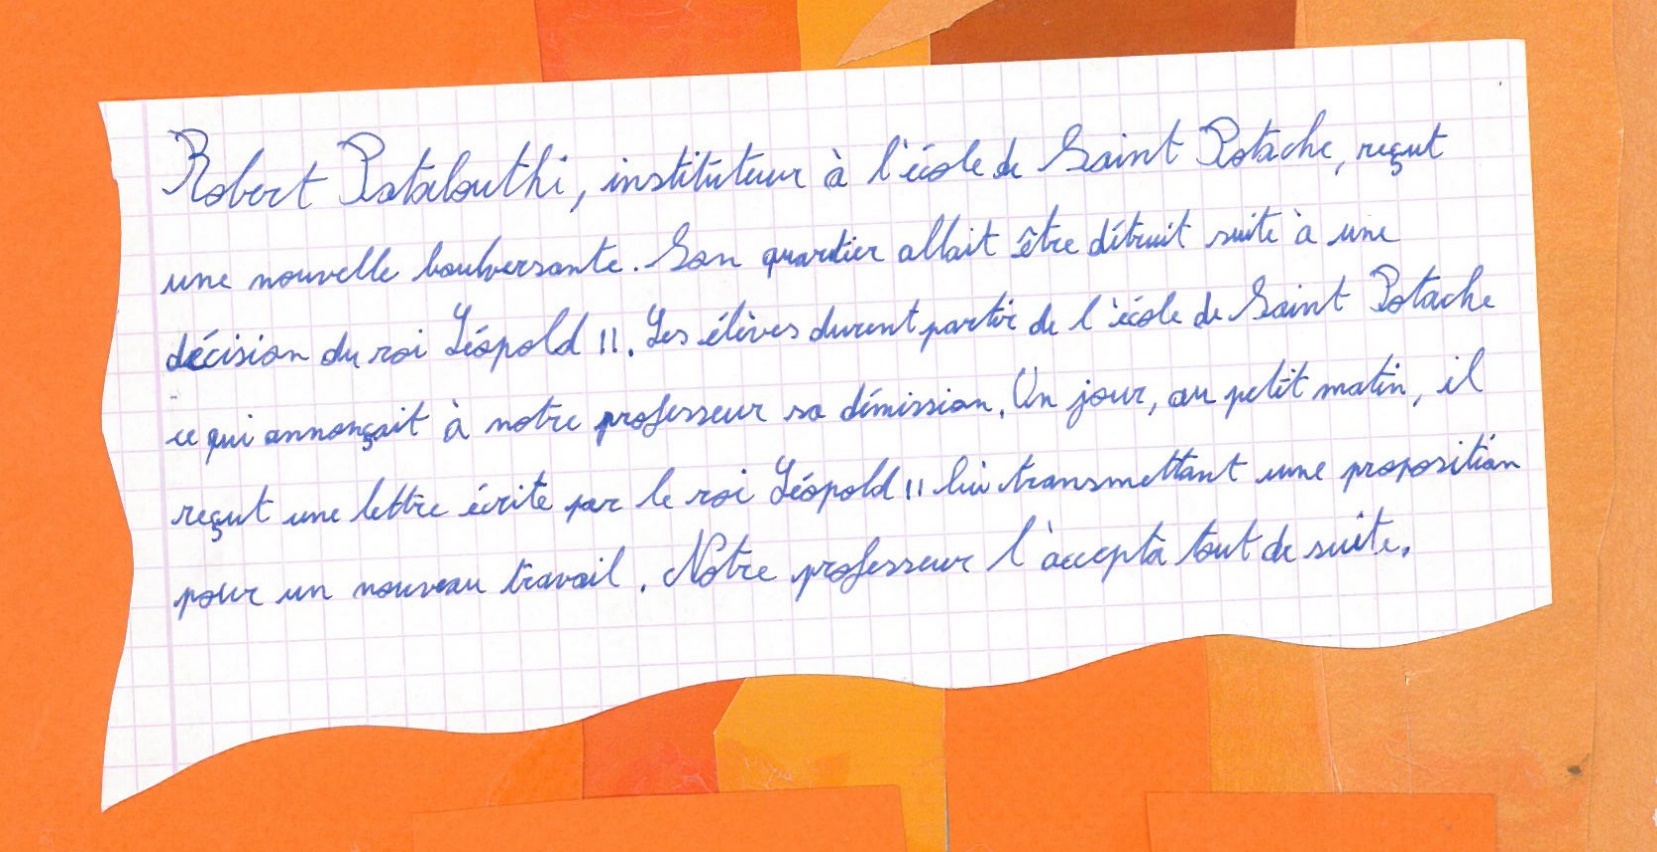 Robert Patalouthi, instituteur à l'école de Saint Potache, reçut
une nouvelle boulversante. Son quartier allait être détruit suite à une
décision du roi Léopold II. Les élèves durent partir de l'école de Saint Potache
ce qui annonçait à notre professeur sa démission. Un jour, au petit matin, il
reçut une lettre écrite par le roi Léopold II lui transmettant une proposition
pour un nouveau travail. Notre professeur l'accepta tout de suite.